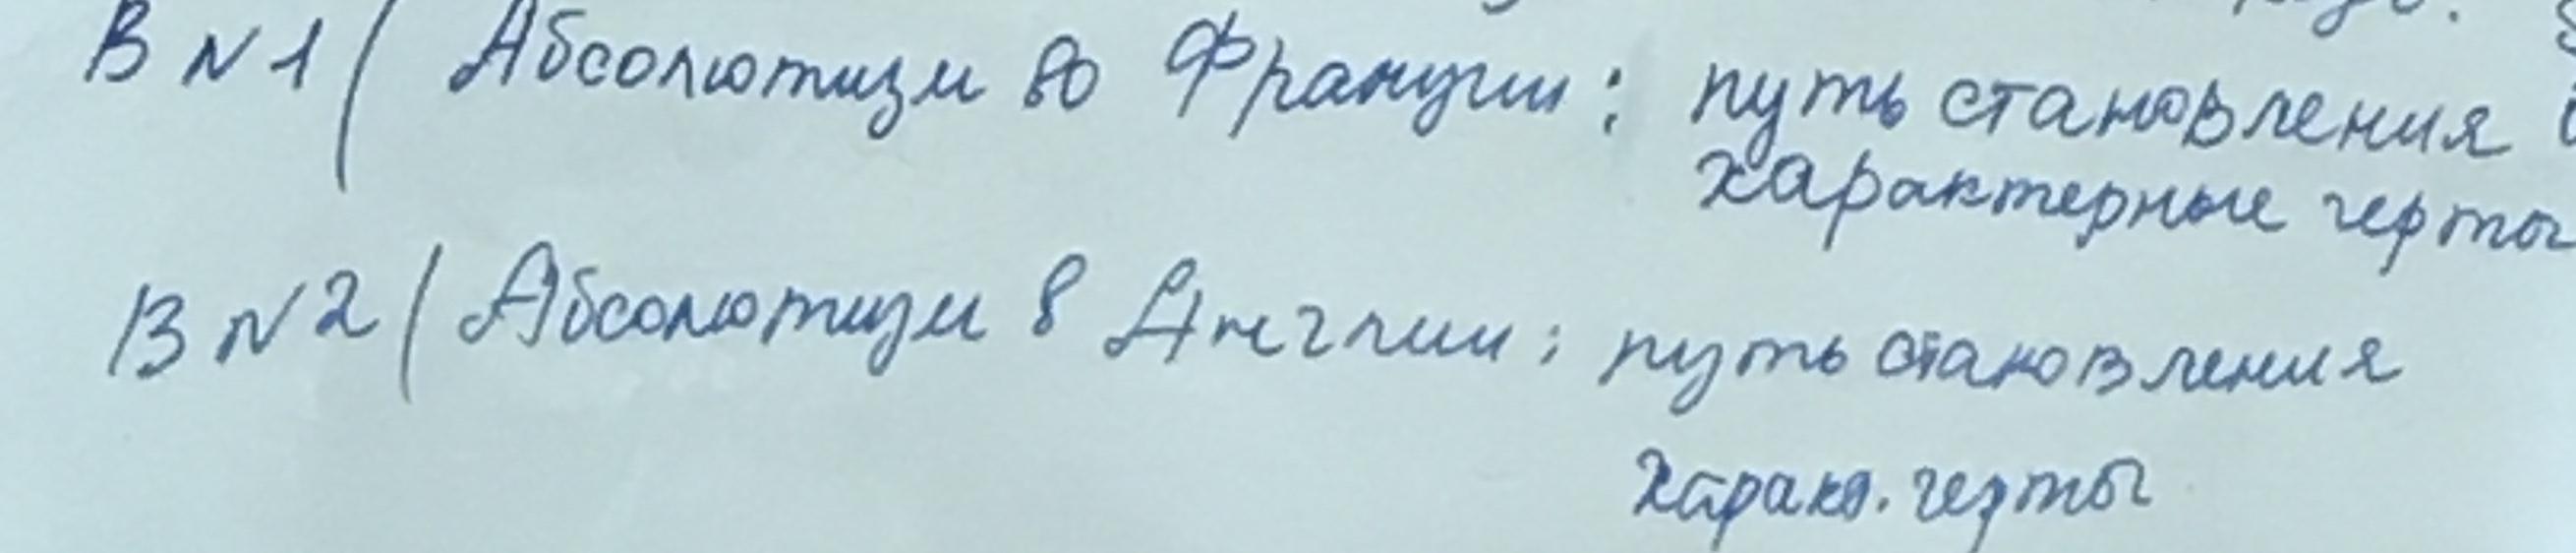 В №1 ( Абсолютизм во Франции: путь становления
характерные черты
В №2 ( Абсолютизм в Англии: путь становления
характ. черты